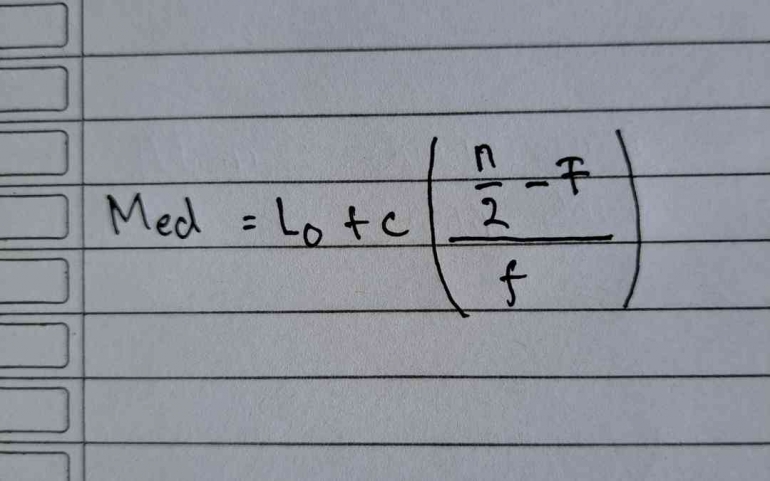 Med = L₀ + c ( (n/2 - F) / f )